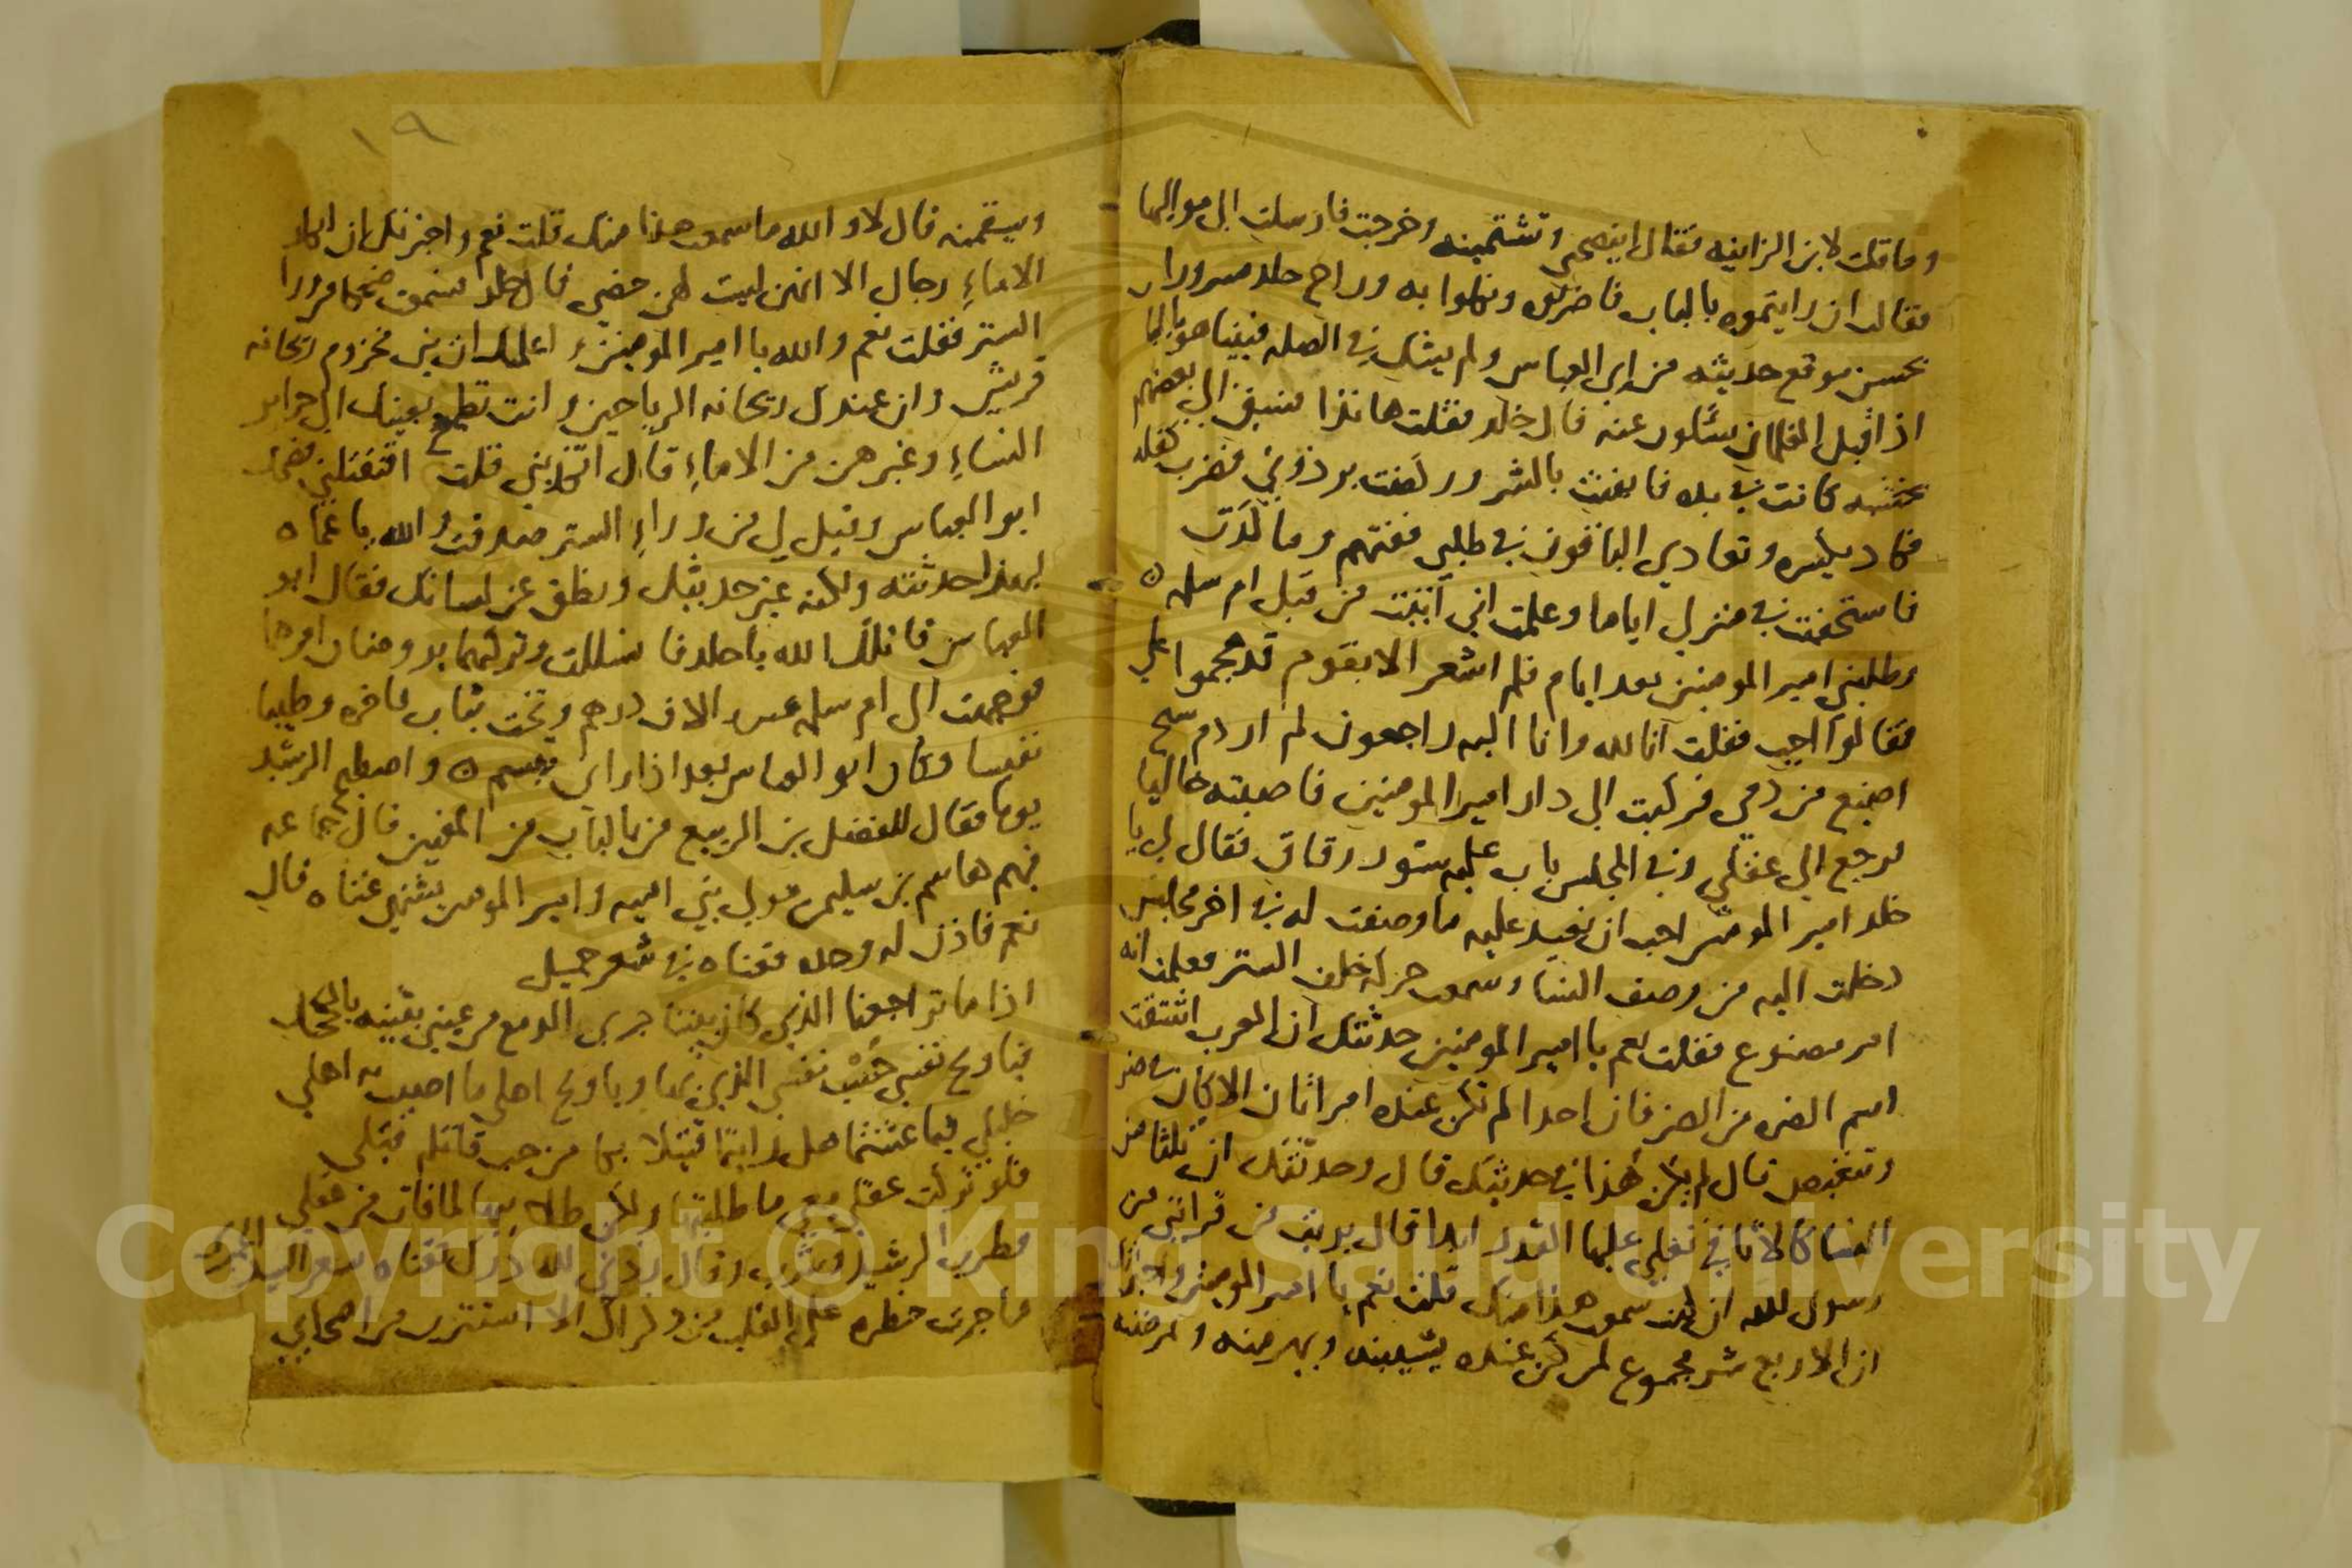 وما قلت لابن الزانيه فقال اينصحني وتشتمينه وخرجت فارسلت الى مواليها
فقالت ان رايتموه بالباب فاضربوه ونكلوا به وراح خلد مسرورا
بحسن موقع حديثه من ابي العباس ولم يشك في الصله فبينا هو بالباب
اذ اقبل الغلمان يسالون عنه قال خلد فقلت هانذا فسبق الي بعضهم
بخشبه كانت في يده فايقنت بالشر وركضت برذوني فضرب كفله
فكاد يكسره وتعادي الباقون في طلبي ففتهم وما كدت
فاستخفيت في منزلي اياما وعلمت اني اتيت من قبل ام سلمه
وطلبني امير المومنين بعد ايام فلم اشعر الا بقوم قد هجموا علي
فقالوا اجب فقلت انا لله وانا اليه راجعون لم ار دم شيخ
اضيع من دمي فركبت الى دار امير المومنين فاصبته خاليا
فرجع الي عقلي وفي المجلس باب عليه ستور رقاق فقال لي يا
خلد امير المومنين احب ان تعيد عليه ما وصفت له في اخر مجلس
دخلت اليه من وصف النسا وسمعت حركه خلف الستر فعلمت انه
امر مصنوع فقلت نعم يا امير المومنين حدثتك ان العرب اشتقت
اسم الضره من الضر فان احدا لم تكن عنده امراتان الا كان في ضر
وتنغيص قال لم يكن هذا في حديثك قال وحدثتك ان ثلثا من
النسا كالاثافي تغلي عليها القدر ابدا قال بريت من قرابتي من
رسول الله ان كنت سمعت هذا منك قلت نعم يا امير المومنين واخبرتك
ان الاربع شر مجموع لمن كن عنده يشيبنه ويهرمنه ويمرضنه
١٩
ويسقمنه قال لا والله ما سمعت هذا منك قلت نعم واخبرتك ان ابكار
الاماء رجال الا انهن ليست لهن خصي قال خلد فسمعت ضحكا من ورا
الستر فقلت نعم والله يا امير المومنين واعلمتك ان بني مخزوم ريحانه
قريش وان عندك ريحانه الرياحين وانت تطمح بعينك الى حراير
النساء وغيرهن من الاماء قال اتكذبني قلت افتقتلني فضحك
ابو العباس وقيل لي من وراء الستر صدقت والله يا عماه
بهذا حدثته ولكنه غير حديثك ونطق عن لسانك فقال ابو
العباس قاتلك الله يا خلد فانسللت وتركتهما يروضان امرهما
فوجهت الى ام سلمه عشره الاف درهم وتخت ثياب فاخره وطيبا
نفيسا وكان ابو العباس بعد اذا راني تبسم ه واصطبح الرشيد
يوما فقال للفضل بن الربيع من بالباب من المغنين قال جماعه
فيهم هاشم بن سليمن مولى بني اميه وامير المومنين يشتهي غناه قال
نعم فاذن له وحده فغناه في شعر جميل
اذا ما تراجعنا الذي كان بيننا جرى الدمع من عيني بثينه بالكحل
فيا ويح نفسي حسب نفسي الذي بها ويا ويح اهلي ما اصيب به اهلي
خليلي فيما عشتما هل رايتما قتيلا بكا من حب قاتله قبلي
فلو تركت عقلي معي ما طلبتها ولكن طلابيها لما فات من عقلي
فطرب الرشيد وشرب وقال
ما جرت خطره على القلب مني ذكراك الا استترت من اصحابي